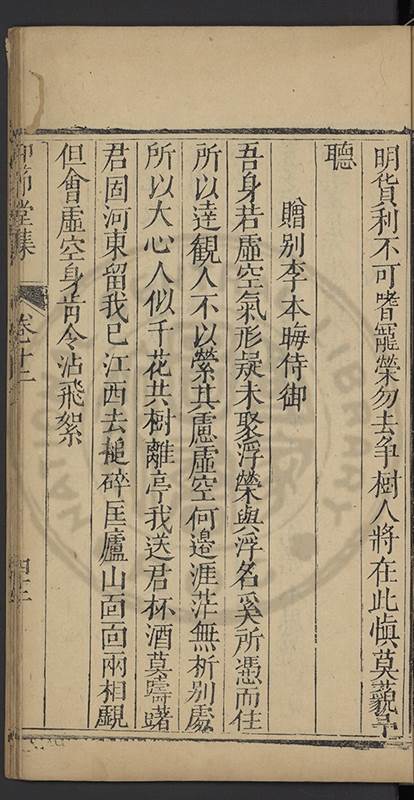 明貨利不可嗜寵榮勿去爭樹人將在此慎莫藐乎
聽
贈別李本晦侍御
吾身若虛空氣形疑未聚浮榮與浮名奚所憑而住
所以達観人不以縈其慮虛空何邉涯茫無析別處
所以大心人似千花共樹離亭我送君杯酒莫躊躇
君固河東留我已江西去搥碎匡廬山面面兩相覷
但會虛空身肯令沾飛絮
堂集
卷十二